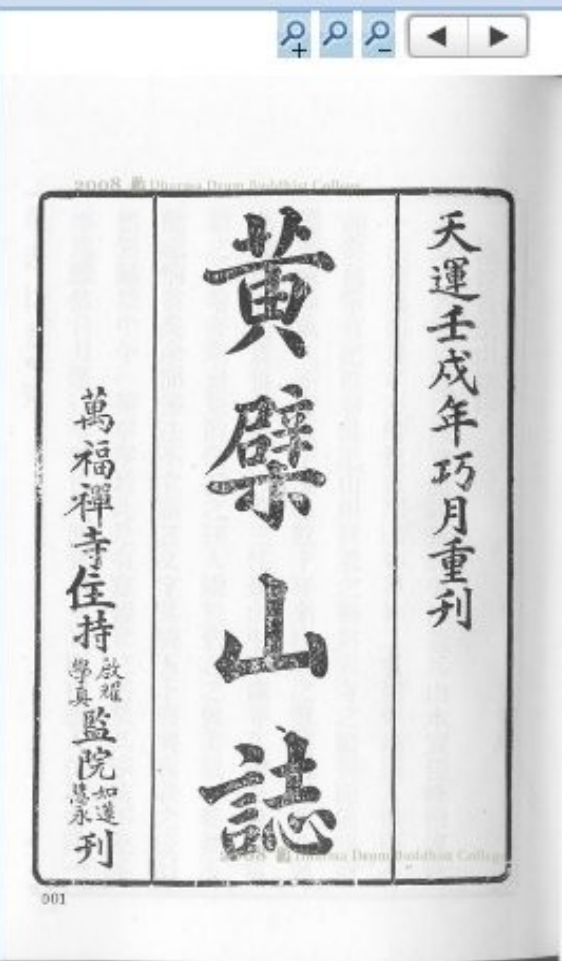 2008 Dharma Drum Buddhist College
天運壬戌年巧月重刊
黃檗山誌
萬福禪寺住持啟耀學真監院如蓮永刊
2008 Dharma Drum Buddhist College
001